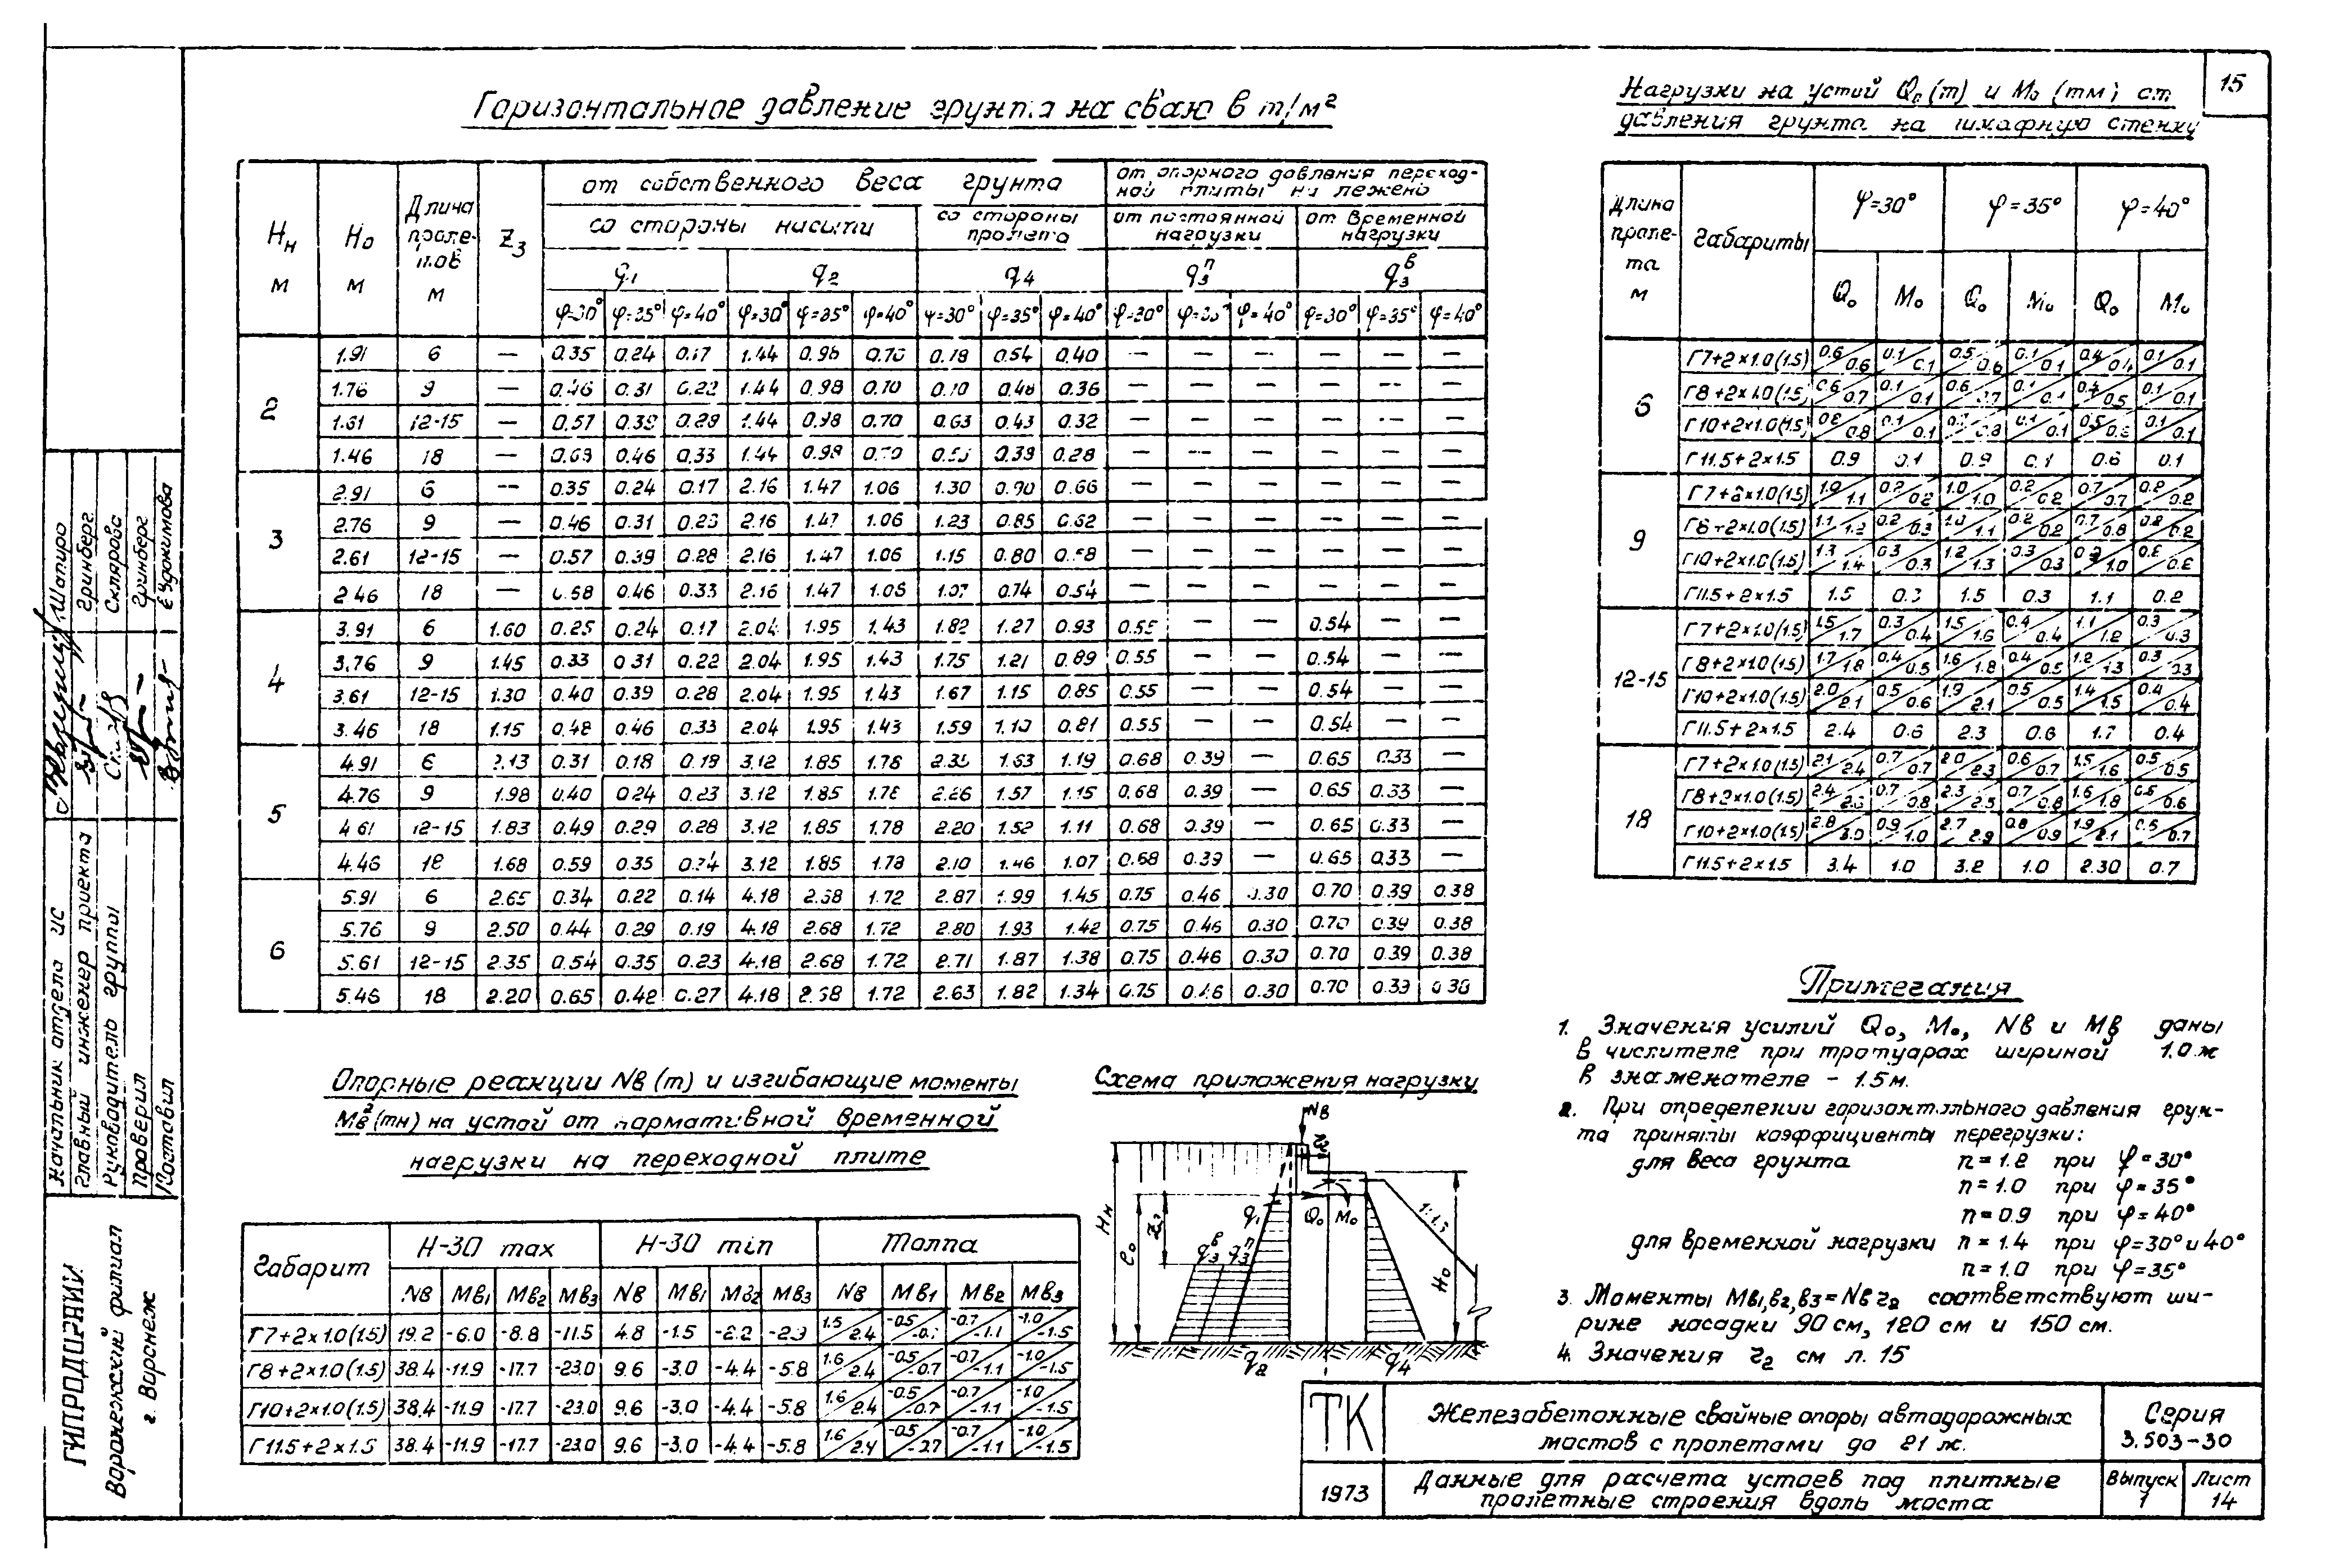 15
Горизонтальное давление грунта на сваю в т/м²
Нн м | Н₀ м | Длина пролетов м | Z₃ | от собственного веса грунта | от опорного давления переходной плиты на лежень
со стороны насыпи | со стороны пролета | от постоянной нагрузки | от временной нагрузки
q₁ | q₂ | q₄ | q₃ⁿ | q₃ᵇ
φ=30° φ=35° φ=40° φ=30° φ=35° φ=40° φ=30° φ=35° φ=40° φ=30° φ=35° φ=40° φ=30° φ=35° φ=40°
2
1.91 6 — 0.35 0.24 0.17 1.44 0.98 0.70 0.78 0.54 0.40 — — — — — —
1.76 9 — 0.46 0.31 0.22 1.44 0.98 0.70 0.70 0.48 0.36 — — — — — —
1.61 12-15 — 0.57 0.39 0.28 1.44 0.98 0.70 0.63 0.43 0.32 — — — — — —
1.46 18 — 0.68 0.46 0.33 1.44 0.98 0.70 0.38 0.28 — — — — — —
3
2.91 6 — 0.35 0.24 0.17 2.16 1.47 1.06 1.30 0.90 0.66 — — — — — —
2.76 9 — 0.46 0.31 0.23 2.16 1.47 1.06 1.23 0.85 0.62 — — — — — —
2.61 12-15 — 0.57 0.39 0.28 2.16 1.47 1.06 1.15 0.80 0.58 — — — — — —
2.46 18 — 0.68 0.46 0.33 2.16 1.47 1.06 1.07 0.74 0.54 — — — — — —
4
3.91 6 1.60 0.25 0.24 0.17 2.04 1.95 1.43 1.82 1.27 0.93 0.55 — — 0.54 — —
3.76 9 1.45 0.33 0.31 0.22 2.04 1.95 1.43 1.75 1.21 0.89 0.55 — — 0.54 — —
3.61 12-15 1.30 0.40 0.39 0.28 2.04 1.95 1.43 1.67 1.15 0.85 0.55 — — 0.54 — —
3.46 18 1.15 0.48 0.46 0.33 2.04 1.95 1.43 1.59 1.10 0.81 0.55 — — 0.54 — —
5
4.91 6 2.13 0.31 0.18 0.18 3.12 1.85 1.78 2.35 1.63 1.19 0.68 0.39 — 0.65 0.33 —
4.76 9 1.98 0.40 0.24 0.23 3.12 1.85 1.78 2.26 1.57 1.15 0.68 0.39 — 0.65 0.33 —
4.61 12-15 1.83 0.49 0.29 0.28 3.12 1.85 1.78 2.20 1.52 1.11 0.68 0.39 — 0.65 0.33 —
4.46 18 1.68 0.59 0.35 0.34 3.12 1.85 1.78 2.10 1.46 1.07 0.68 0.39 — 0.65 0.33 —
6
5.91 6 2.65 0.34 0.22 0.14 4.18 2.68 1.72 2.87 1.99 1.45 0.75 0.46 0.30 0.70 0.39 0.38
5.76 9 2.50 0.44 0.29 0.19 4.18 2.68 1.72 2.80 1.93 1.42 0.75 0.46 0.30 0.70 0.39 0.38
5.61 12-15 2.35 0.54 0.35 0.23 4.18 2.68 1.72 2.71 1.87 1.38 0.75 0.46 0.30 0.70 0.39 0.38
5.46 18 2.20 0.65 0.42 0.27 4.18 2.68 1.72 2.63 1.82 1.34 0.75 0.46 0.30 0.70 0.39 0.38
Нагрузки на устой Q₀ (т) и М₀ (тм) от
давления грунта на шкафную стенку
Длина пролета м | Габариты | φ=30° | φ=35° | φ=40°
Q₀ М₀ Q₀ М₀ Q₀ М₀
6
Г7+2×1.0(1.5) 0.6/0.6 0.1/0.1 0.5/0.6 0.1/0.1 0.4/0.4 0.1/0.1
Г8+2×1.0(1.5) 0.6/0.7 0.1/0.1 0.6/0.7 0.1/0.1 0.4/0.5 0.1/0.1
Г10+2×1.0(1.5) 0.8/0.8 0.1/0.1 0.1/0.1 0.1/0.1
Г11.5+2×1.5 0.9 0.1 0.9 0.1 0.6 0.1
9
Г7+2×1.0(1.5) 1.0/1.1 0.2/0.2 1.0/1.0 0.2/0.2 0.7/0.7 0.2/0.2
Г8+2×1.0(1.5) 1.1/1.2 0.2/0.3 1.0/1.1 0.2/0.2 0.7/0.8 0.2/0.2
Г10+2×1.0(1.5) 1.3/1.4 0.3/0.3 1.2/1.3 0.3/0.3 0.9/1.0 0.2/0.2
Г11.5+2×1.5 1.5 0.3 1.5 0.3 1.1 0.2
12-15
Г7+2×1.0(1.5) 1.5/1.7 0.3/0.4 1.5/1.6 0.4/0.4 1.1/1.2 0.3/0.3
Г8+2×1.0(1.5) 1.7/1.8 0.4/0.5 1.6/1.8 0.4/0.5 1.2/1.3 0.3/0.3
Г10+2×1.0(1.5) 2.0/2.1 0.5/0.6 1.9/2.1 0.5/0.5 1.4/1.5 0.4/0.4
Г11.5+2×1.5 2.4 0.6 2.3 0.6 1.7 0.4
18
Г7+2×1.0(1.5) 2.1/2.4 0.7/0.7 2.0/2.3 0.6/0.7 1.5/1.6 0.5/0.5
Г8+2×1.0(1.5) 2.4/2.6 0.7/0.8 2.3/2.5 0.7/0.8 1.6/1.8 0.5/0.6
Г10+2×1.0(1.5) 2.8/3.0 0.9/1.0 2.7/2.9 0.8/0.9 1.9/2.1 0.6/0.7
Г11.5+2×1.5 3.4 1.0 3.2 1.0 2.30 0.7
Опорные реакции Nв (т) и изгибающие моменты
Мв (тм) на устой от нормативной временной
нагрузки на переходной плите
Габарит | Н-30 max | Н-30 min | Толпа
Nв Мв₁ Мв₂ Мв₃ Nв Мв₁ Мв₂ Мв₃ Nв Мв₁ Мв₂ Мв₃
Г7+2×1.0(1.5) 19.2 -6.0 -8.8 -11.5 4.8 -1.5 -2.2 -2.9 1.5/2.4 -0.5/-0.7 -0.7/-1.1 -1.0/-1.5
Г8+2×1.0(1.5) 38.4 -11.9 -17.7 -23.0 9.6 -3.0 -4.4 -5.8 1.6/2.4 -0.5/-0.7 -0.7/-1.1 -1.0/-1.5
Г10+2×1.0(1.5) 38.4 -11.9 -17.7 -23.0 9.6 -3.0 -4.4 -5.8 1.6/2.4 -0.5/-0.7 -0.7/-1.1 -1.0/-1.5
Г11.5+2×1.5 38.4 -11.9 -17.7 -23.0 9.6 -3.0 -4.4 -5.8 1.6/2.4 -0.5/-0.7 -0.7/-1.1 -1.0/-1.5
Схема приложения нагрузки
Nв
z₂
q₁ Q₀ М₀ 1:1.5
Нн ℓ₀ Z₃ q₃ᵇ q₃ⁿ Н₀
q₂ q₄
Примечания
1. Значения усилий Q₀, М₀, Nв и Мв даны
в числителе при тротуарах шириной 1.0 м
в знаменателе - 1.5 м.
2. При определении горизонтального давления грун-
та приняты коэффициенты перегрузки:
для веса грунта n = 1.2 при φ = 30°
n = 1.0 при φ = 35°
n = 0.9 при φ = 40°
для временной нагрузки n = 1.4 при φ=30° и 40°
n = 1.0 при φ = 35°
3. Моменты Мв₁,в₂,в₃ = Nв z₂ соответствуют ши-
рине насадки 90 см, 120 см и 150 см.
4. Значения z₂ см л. 15
ТК
1973
Железобетонные свайные опоры автодорожных
мостов с пролетами до 21 м.
Серия
3.503-30
Данные для расчета устоев под плитные
пролетные строения вдоль моста
Выпуск
1
Лист
14
Начальник отдела ИС Шапиро
Главный инженер проекта Гринберг
Руководитель группы Склярова
Проверил Гринберг
Составил Евдокимова
ГИПРОДОРНИИ
Воронежский филиал
г. Воронеж